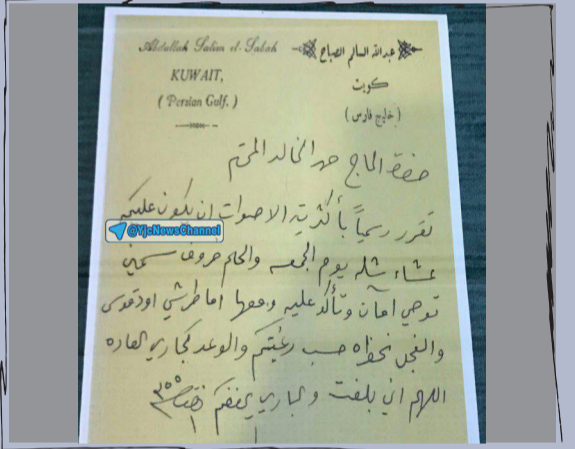 Abdullah Salim el-Sabah
KUWAIT,
( Persian Gulf. )
عبدالله السالم الصباح
كويت
(خليج فارس)
حضرة الحاج حمد الخالد المحترم
تقرر رسمياً بأكثرية الاصوات ان يكون عليكم
@YjcNewsChannel
عشاء شله يوم الجمعه والحلم خروف سمين
توصي امآن وتأكد عليه ومعها اما طرشي او دقوس
والفجل نحظاه حسب رغبتكم والوعد كجاري العاده
اللهم اني بلغت والباري يحفظكم